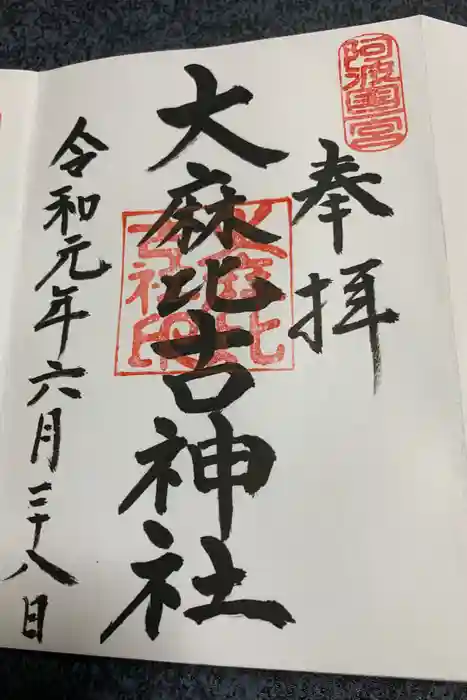 阿波國一宮
奉拝
大麻比古神社
大麻比
古社印
令和元年六月二十八日